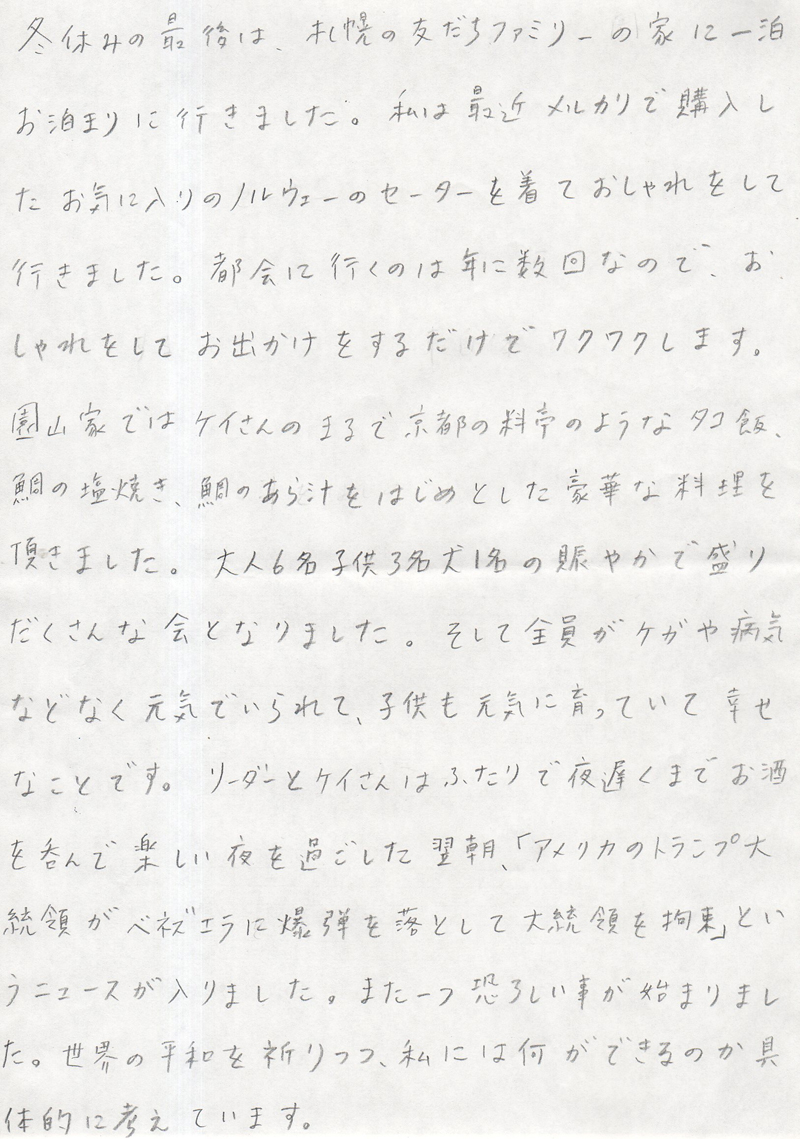 冬休みの最後は、札幌の友だちファミリーの家に一泊
お泊まりに行きました。私は最近メルカリで購入し
たお気に入りのノルウェーのセーターを着ておしゃれをして
行きました。都会に行くのは年に数回なので、お
しゃれをしてお出かけをするだけでワクワクします。
園山家ではケイさんのまるで京都の料亭のようなタコ飯、
鯛の塩焼き、鯛のあら汁をはじめとした豪華な料理を
頂きました。大人6名子供3名犬1名の賑やかで盛り
だくさんな会となりました。そして全員がケガや病気
などなく元気でいられて、子供も元気に育っていて幸せ
なことです。リーダーとケイさんはふたりで夜遅くまでお酒
を呑んで楽しい夜を過ごした翌朝、「アメリカのトランプ大
統領がベネズエラに爆弾を落として大統領を拘束」とい
うニュースが入りました。また一つ恐ろしい事が始まりまし
た。世界の平和を祈りつつ、私には何ができるのか具
体的に考えています。